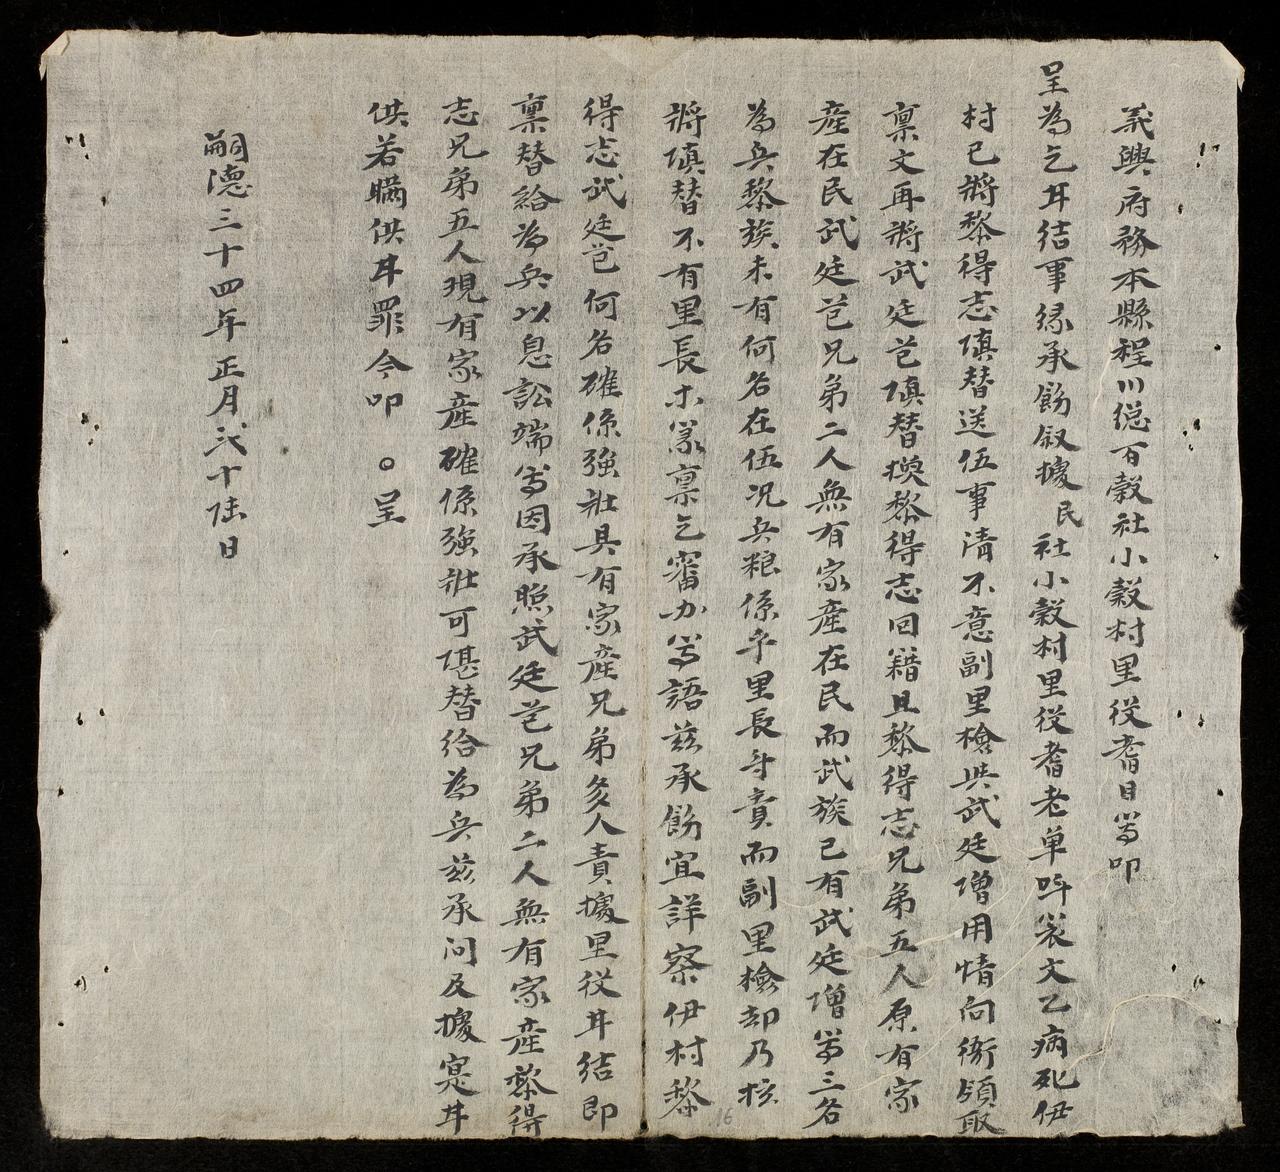 義興府務本縣程川総百穀社小穀村里役耆目等叩
呈為乞甘結事縁承飭叙據民社小穀村里役耆老单叫裴文乙病死伊
村已將黎得志填替送伍事清不意副里檜與武廷增用情向衙領取
禀文再將武廷芑填替換黎得志回籍且黎得志兄弟五人原有家
産在民武廷芑兄弟二人無有家産在民而武族已有武廷增等三名
為兵黎族未有何名在伍况兵粮係乎里長身責而副里檜却乃核
將填替不有里長示象禀乞審办等語兹承飭宜詳察伊村黎
得志武廷芑何名確係強壯具有家産兄弟多人責據里役甘結即
禀替給為兵以息訟端等因承照武廷芑兄弟二人無有家産黎得
志兄弟五人現有家産確係強壯可堪替給為兵兹承问及據寔甘
供若瞞供甘罪今叩 。呈
嗣德三十四年正月弍十陆日
16